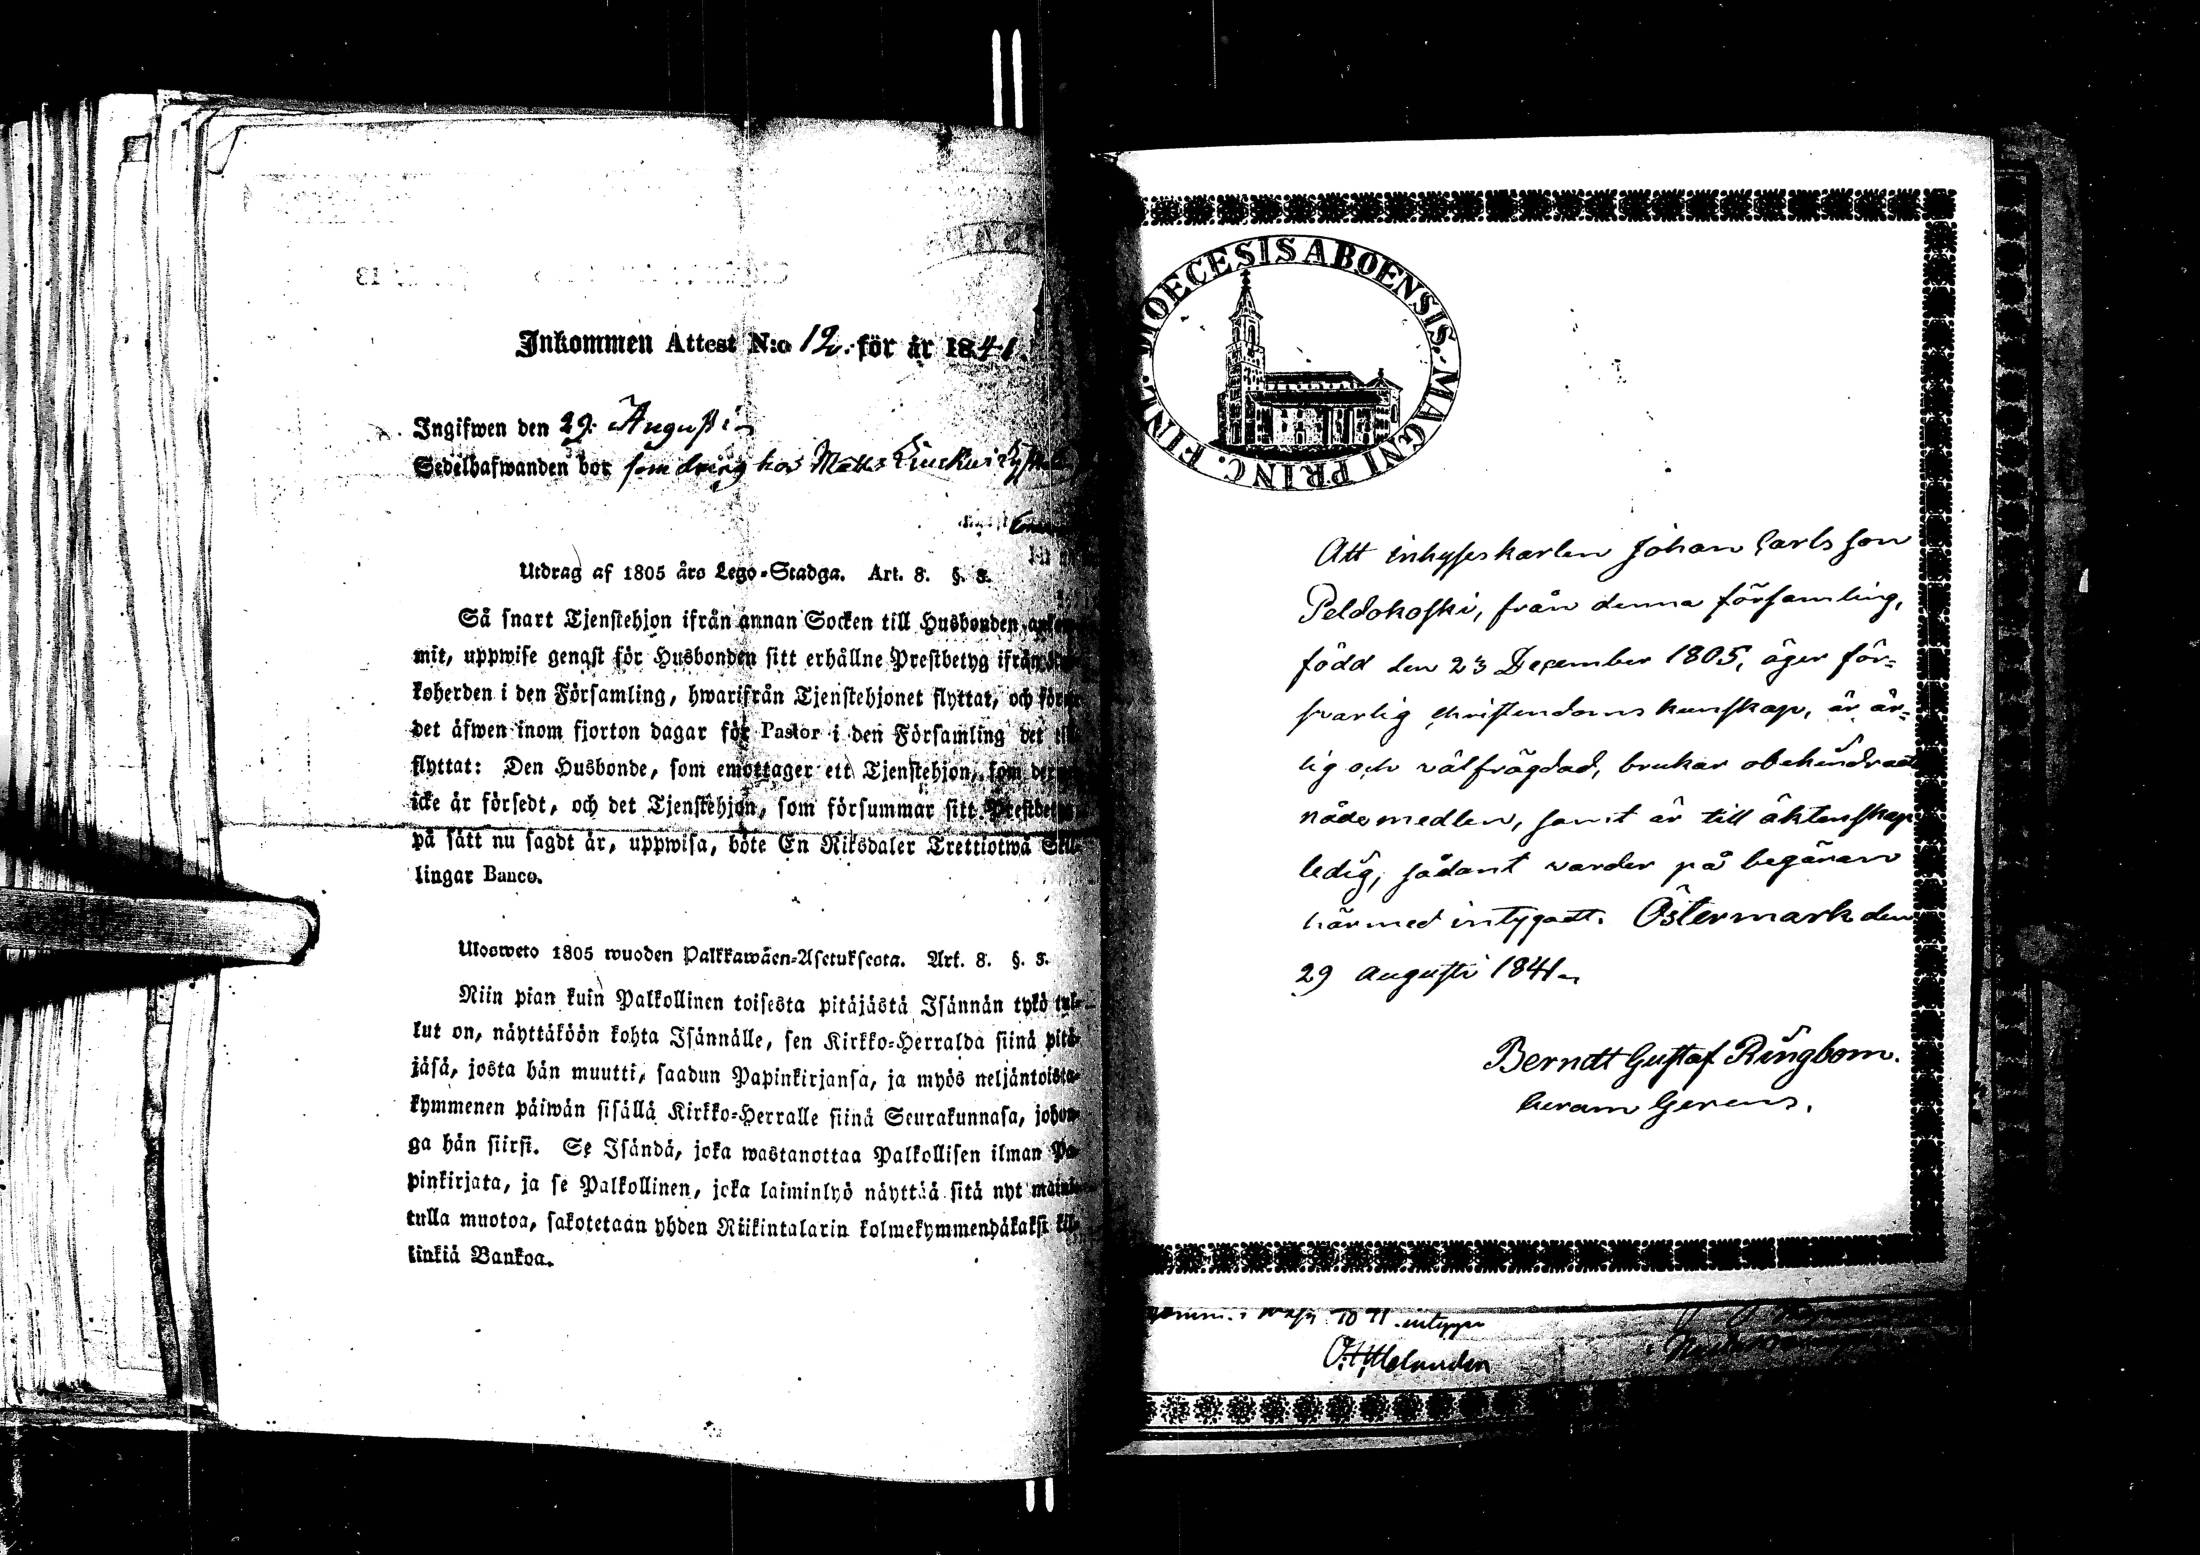 Inkommen Attest N:o 12. för år 1841.
Ingifwen den 29. Augusti
Sedelhafwanden bor som dräng hos Matts
Utdrag af 1805 års Lego-Stadga. Art. 8. §. 3.
Så snart Tjenstehjon ifrån annan Socken till Husbonden
mit, uppwise genast för Husbonden sitt erhållne Prestbetyg ifrån
koherden i den Församling, hwarifrån Tjenstehjonet flyttat, och
det äfwen inom fjorton dagar för Pastor i den Församling det
flyttat: Den Husbonde, som emottager ett Tjenstehjon, som
icke är försedt, och det Tjenstehjon, som försummar sitt Prestbetyg
på sätt nu sagdt är, uppwisa, böte En Riksdaler Trettiotwå Skil-
lingar Banco.
Ulosweto 1805 wuoden Palkkawäen-Asetuksesta. Art. 8. §. 3.
Niin pian kuin Palkollinen toisesta pitäjästä Isännän tykö tul-
lut on, näyttäköön kohta Isännälle, sen Kirkko-Herralda siinä pitä-
jäsä, josta hän muutti, saadun Papinkirjansa, ja myös neljäntoista-
kymmenen päiwän sisällä Kirkko-Herralle siinä Seurakunnasa, johon-
ga hän siirsi. Se Isändä, joka wastanottaa Palkollisen ilman Pa-
pinkirjata, ja se Palkollinen, joka laiminlyö näyttää sitä nyt maini-
tulla muotoa, sakotetaan yhden Riikintalarin kolmekymmendäkaksi kil-
linkiä Bankoa.
DIOECESIS ABOENSIS. MAGNI PRINC. FINL.
Att inhyseskarlen Johan Carlsson
Peldokoski, från denna församling,
född den 23 December 1805, äger för=
svarlig christendoms kunskap, är är=
lig och välfrägdad, brukar obehindradt
nådemedlen, samt är till äktenskap
ledig, sådant varder på begäran
härmed intygadt. Östermark den
29 Augusti 1841.
Berndt Gustaf Ringbom.
Curam Gerens.